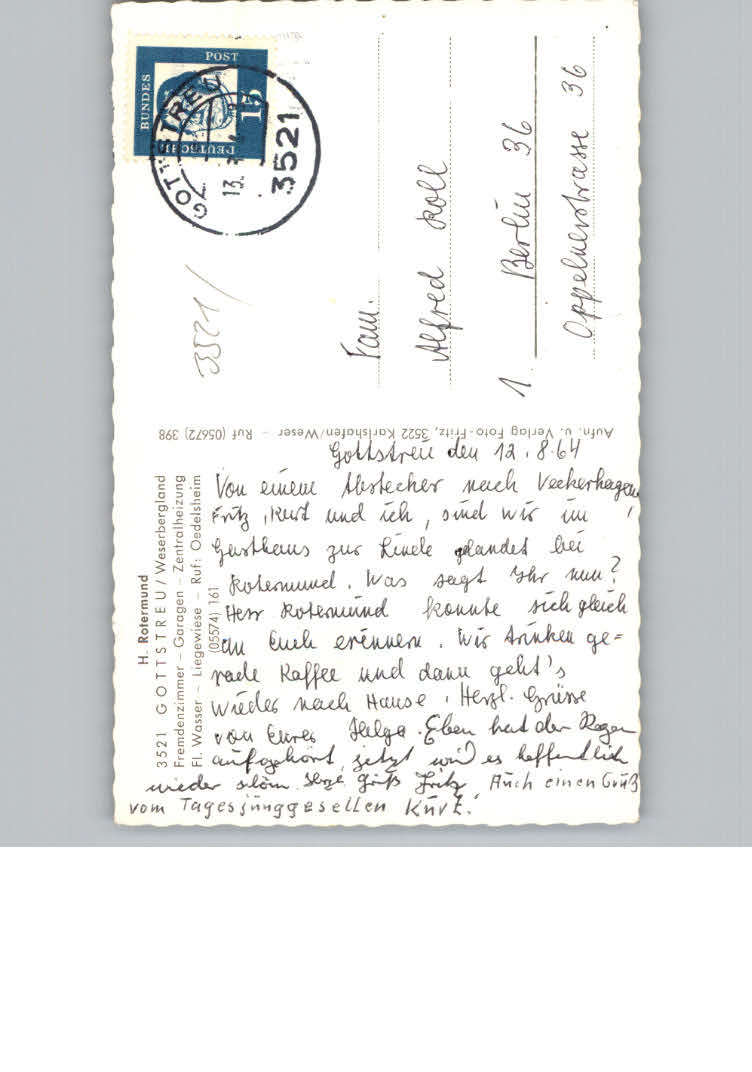 DEUTSCHE
BUNDES
POST
15
GOTTSTREU
13.
3521
3521/
Fam.
Alfred Koll
1 Berlin 36
Oppelnerstrasse 36
Aufn. u. Verlag Foto-Fritz, 3522 Karlshafen/Weser – Ruf (05672) 398
H. Rotermund
3521 GOTTSTREU/Weserbergland
Fremdenzimmer – Garagen – Zentralheizung
Fl. Wasser – Liegewiese – Ruf: Oedelsheim
(05574) 161
Gottstreu den 12.8.64
Von einem Abstecher nach Veckerhagen,
Fritz, Kurt und ich, sind wir im
Gasthaus zur Linde gelandet bei
Rotermund. Was sagt Ihr nun?
Herr Rotermund konnte sich gleich
an Euch erinnern. Wir trinken ge=
rade Kaffee und dann geht's
wieder nach Hause. Herzl. Grüsse
von Eurer Helga. Eben hat der Regen
aufgehört, jetzt wird es hoffentlich
wieder schön. Herzl. Gruß Fritz. Auch einen Gruß
vom Tagesjunggesellen Kurt.